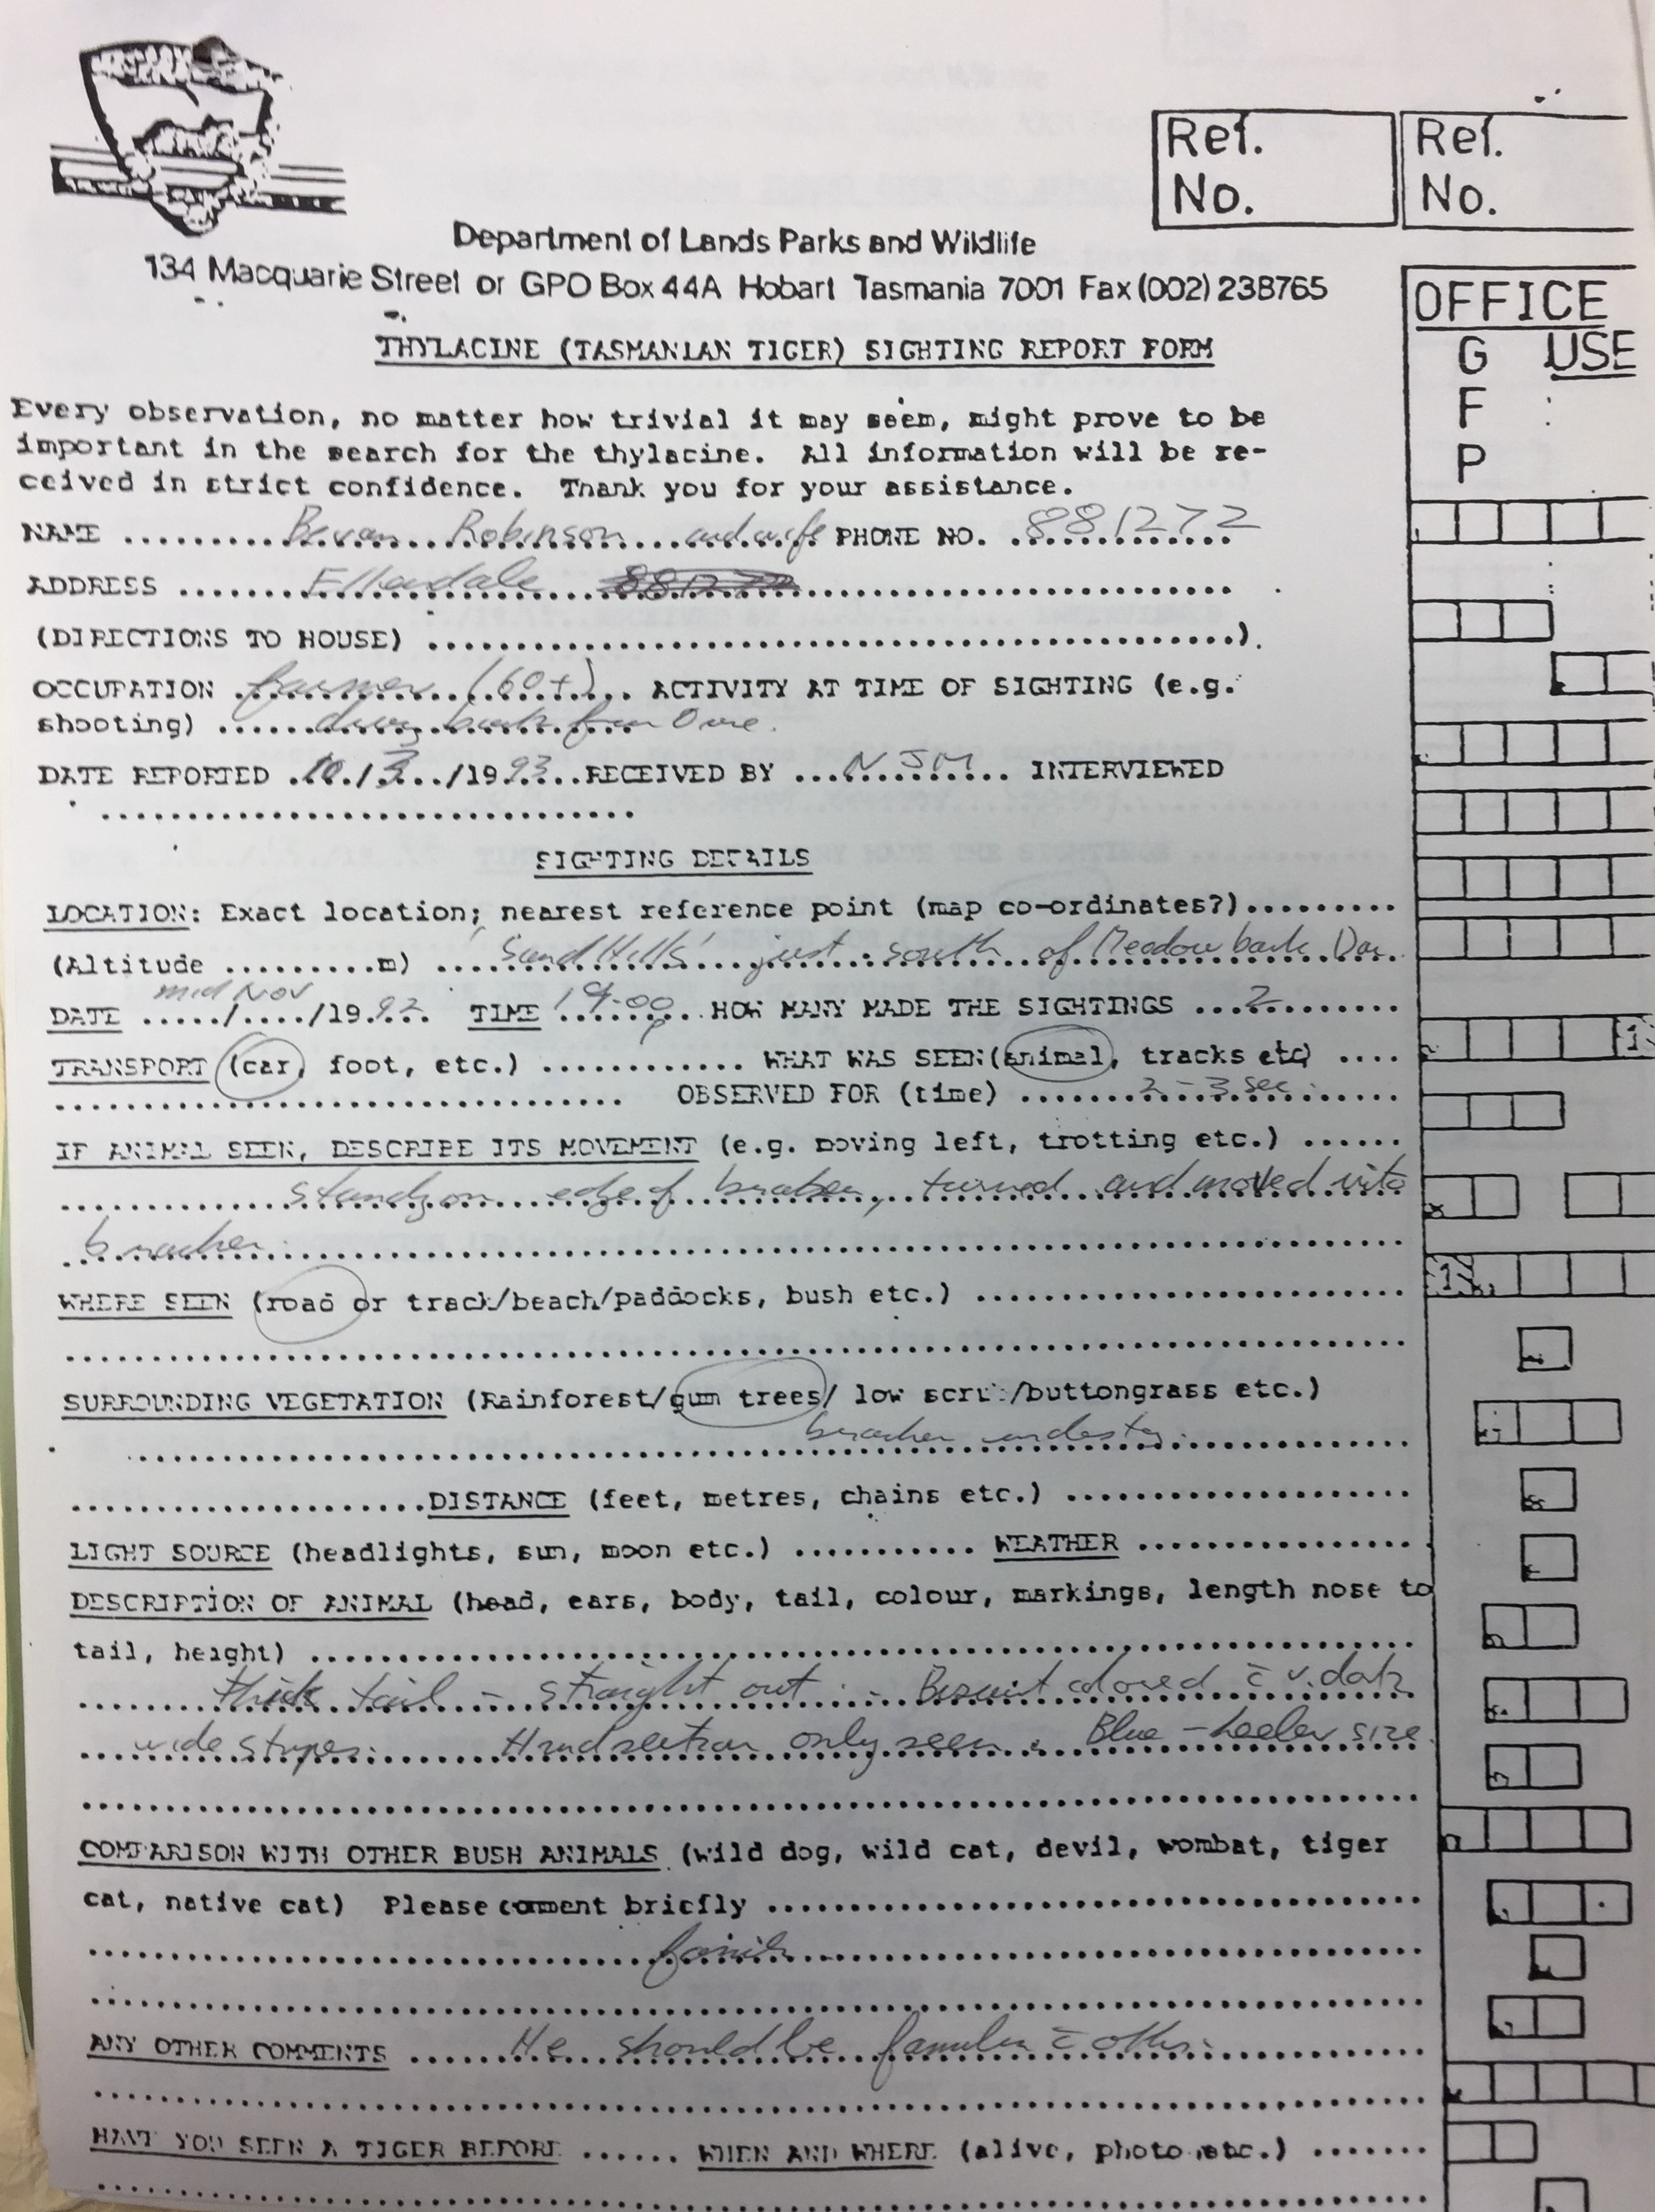 Ref.
No.
Ref.
No.
Department of Lands Parks and Wildlife
134 Macquarie Street or GPO Box 44A Hobart Tasmania 7001 Fax (002) 238765
THYLACINE (TASMANIAN TIGER) SIGHTING REPORT FORM
OFFICE
USE
G
F
P
Every observation, no matter how trivial it may seem, might prove to be
important in the search for the thylacine. All information will be re-
ceived in strict confidence. Thank you for your assistance.
NAME Bevan Robinson and wife PHONE NO. 881272
ADDRESS Ellendale
(DIRECTIONS TO HOUSE)
OCCUPATION farmer (60+) ACTIVITY AT TIME OF SIGHTING (e.g.
shooting) back from Ouse.
DATE REPORTED 10/3/1993 RECEIVED BY NJM INTERVIEWED
SIGHTING DETAILS
LOCATION: Exact location; nearest reference point (map co-ordinates?)
(Altitude m) 'Sand Hills' just south of Meadowbank Dam
mid Nov
DATE / /1992 TIME 19.00 HOW MANY MADE THE SIGHTINGS 2
TRANSPORT (car, foot, etc.) WHAT WAS SEEN (animal, tracks etc)
OBSERVED FOR (time) 2-3 sec.
IF ANIMAL SEEN, DESCRIBE ITS MOVEMENT (e.g. moving left, trotting etc.)
edge of bracken, turned and moved into
bracken.
WHERE SEEN (road or track/beach/paddocks, bush etc.)
SURROUNDING VEGETATION (Rainforest/gum trees/ low scrub/buttongrass etc.)
bracken
DISTANCE (feet, metres, chains etc.)
LIGHT SOURCE (headlights, sun, moon etc.) WEATHER
DESCRIPTION OF ANIMAL (head, ears, body, tail, colour, markings, length nose to
tail, height)
thick tail - straight out - Biscuit colored c̄ v. dark
wide stripes. Hind section only seen. Blue-heeler size.
COMPARISON WITH OTHER BUSH ANIMALS (wild dog, wild cat, devil, wombat, tiger
cat, native cat) Please comment briefly
ANY OTHER COMMENTS He should be familiar c̄
HAVE YOU SEEN A TIGER BEFORE WHEN AND WHERE (alive, photo etc.)